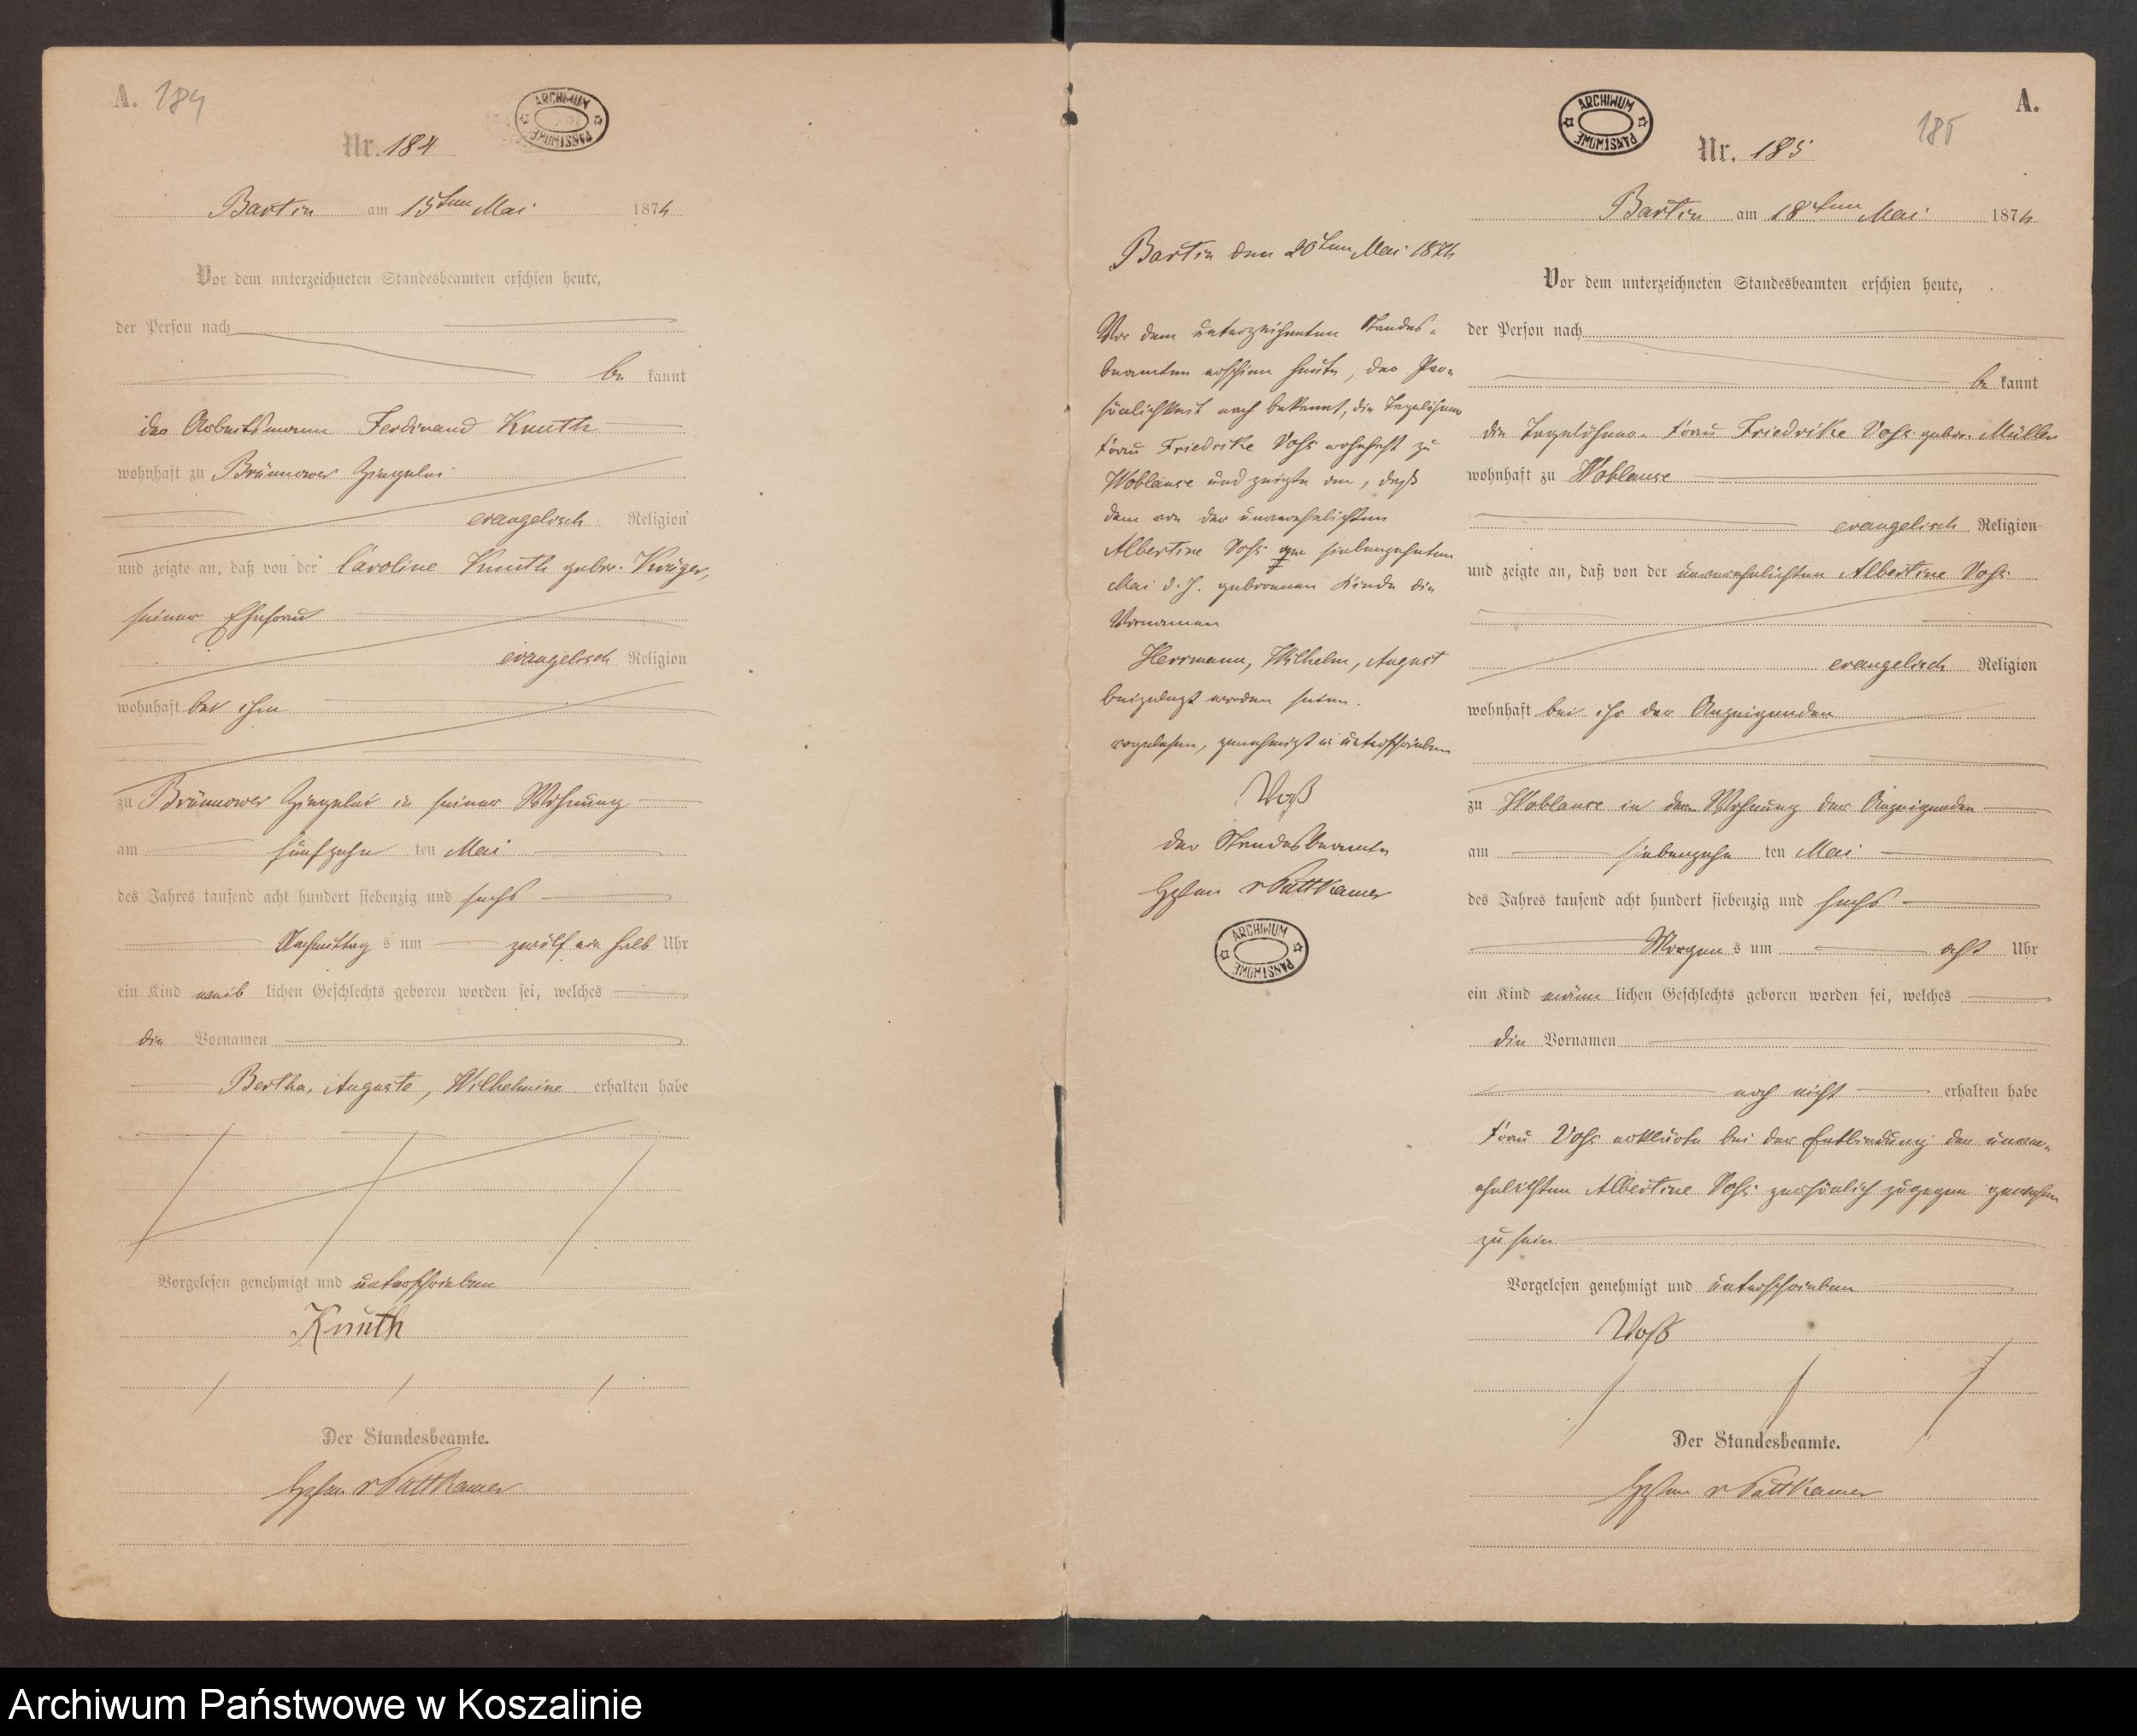 A. 184
ARCHIWUM PAŃSTWOWE
Nr. 184
Bartin am 15ten Mai 1876
Vor dem unterzeichneten Standesbeamten erschien heute,
der Person nach
be kannt
der Arbeitsmann Ferdinand Knuth
wohnhaft zu Brünnower Ziegelei
evangelisch Religion
und zeigte an, daß von der Caroline Knuth gebor. Krüger,
seiner Ehefrau
evangelisch Religion
wohnhaft bei ihm
zu Brünnower Ziegelei in seiner Wohnung
am fünfzehn ten Mai
des Jahres tausend acht hundert siebenzig und sechs
Nachmittag s um zwölf ein halb Uhr
ein Kind weib lichen Geschlechts geboren worden sei, welches
die Vornamen
Bertha, Auguste, Wilhelmine erhalten habe
Vorgelesen genehmigt und unterschrieben
Knuth
Der Standesbeamte.
v Puttkamer
Bartin den 20ten Mai 1876
Vor dem unterzeichneten Standes-
beamten erschien heute, der Per-
sönlichkeit nach bekannt, die Tagelöhner
Frau Friedrike Voß wohnhaft zu
Woblanse und zeigte an, daß
dem von der unverehelichten
Albertine Voß am siebenzehnten
Mai d. J. geborenen Kinde die
Vornamen
Herrmann, Wilhelm, August
beigelegt worden seien.
vorgelesen, genehmigt u unterschrieben
Voß
der Standesbeamte
v Puttkamer
ARCHIWUM PAŃSTWOWE
ARCHIWUM PAŃSTWOWE
A.
185
Nr. 185
Bartin am 18ten Mai 1876
Vor dem unterzeichneten Standesbeamten erschien heute,
der Person nach
be kannt
die Tagelöhner- Frau Friedrike Voß gebor. Müller
wohnhaft zu Woblanse
evangelisch Religion
und zeigte an, daß von der unverehelichten Albertine Voß
evangelisch Religion
wohnhaft bei ihr der Anzeigenden
zu Woblanse in der Wohnung der Anzeigenden
am siebenzehn ten Mai
des Jahres tausend acht hundert siebenzig und sechs
Morgen s um acht Uhr
ein Kind männ lichen Geschlechts geboren worden sei, welches
die Vornamen
noch nicht erhalten habe
Frau Voß erklärte bei der Entbindung der unver-
ehelichten Albertine Voß persönlich zugegen gewesen
zu sein
Vorgelesen genehmigt und unterschrieben
Voß
Der Standesbeamte.
v Puttkamer
Archiwum Państwowe w Koszalinie